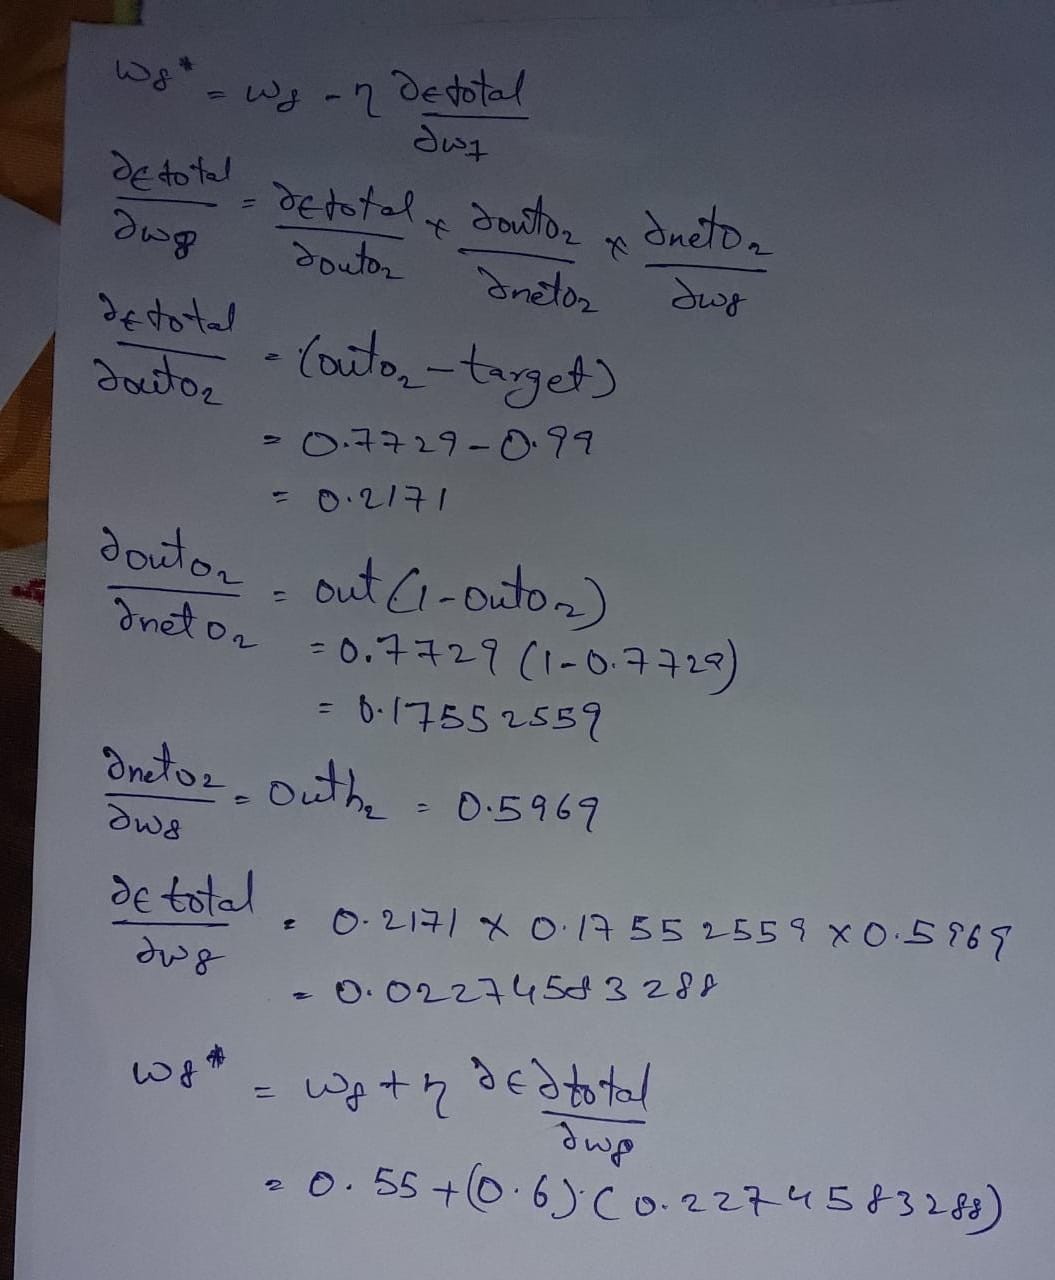 w8* = w8 - η ∂εtotal / ∂w7
∂εtotal / ∂w8 = ∂εtotal / ∂outo2 * ∂outo2 / ∂neto2 * ∂neto2 / ∂w8
∂εtotal / ∂outo2 = (outo2 - target)
= 0.7729 - 0.99
= 0.2171
∂outo2 / ∂neto2 = out (1 - outo2)
= 0.7729 (1-0.7729)
= 0.17552559
∂neto2 / ∂w8 = outh2 = 0.5969
∂ε total / ∂w8 = 0.2171 x 0.17552559 x 0.5969
= 0.02274583288
w8* = w8 + η ∂ε∂total / ∂w8
= 0.55 + (0.6).(0.2274583288)